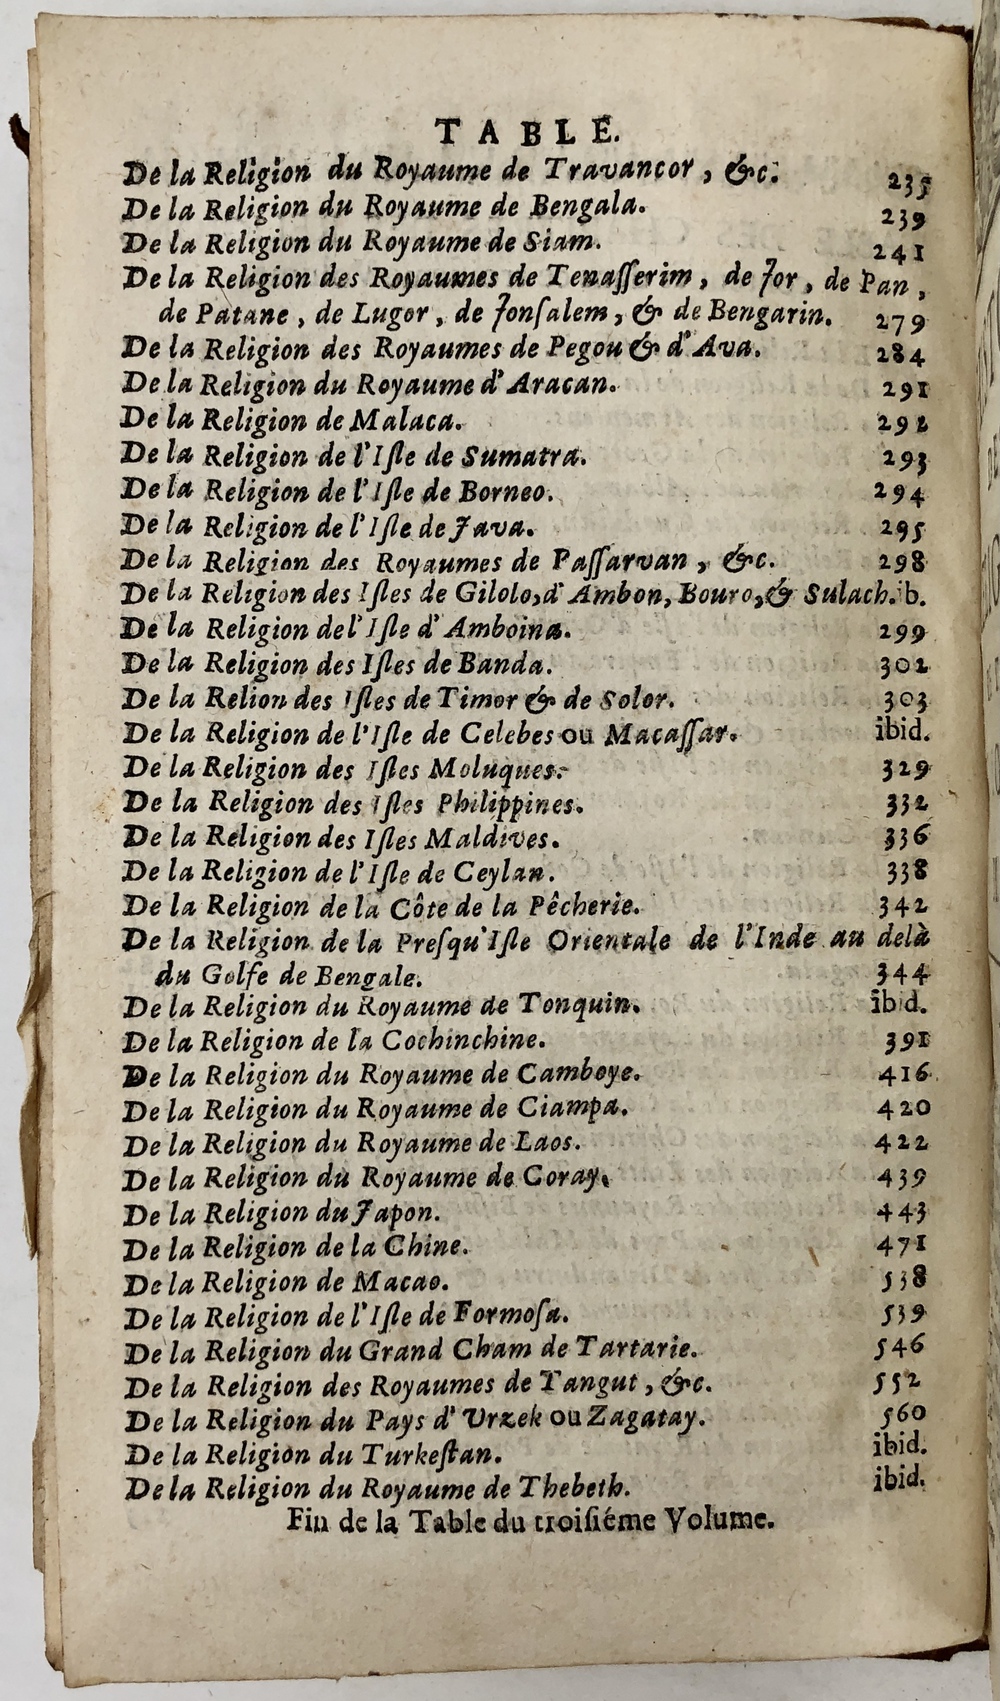 TABLE.
De la Religion du Royaume de Travancor, &c. 235
De la Religion du Royaume de Bengala. 239
De la Religion du Royaume de Siam. 241
De la Religion des Royaumes de Tenaſſerim, de Jor, de Pan,
de Patane, de Lugor, de Jonſalem, & de Bengarin. 279
De la Religion des Royaumes de Pegou & d'Ava. 284
De la Religion du Royaume d'Aracan. 291
De la Religion de Malaca. 292
De la Religion de l'Iſle de Sumatra. 293
De la Religion de l'Iſle de Borneo. 294
De la Religion de l'Iſle de Java. 295
De la Religion des Royaumes de Paſſarvan, &c. 298
De la Religion des Iſles de Gilolo, d'Ambon, Bouro, & Sulach. ib.
De la Religion de l'Iſle d'Amboina. 299
De la Religion des Iſles de Banda. 302
De la Relion des Iſles de Timor & de Solor. 303
De la Religion de l'Iſle de Celebes ou Macaſſar. ibid.
De la Religion des Iſles Moluques. 329
De la Religion des Iſles Philippines. 332
De la Religion des Iſles Maldives. 336
De la Religion de l'Iſle de Ceylan. 338
De la Religion de la Côte de la Pêcherie. 342
De la Religion de la Preſqu'Iſle Orientale de l'Inde au delà
du Golfe de Bengale. 344
De la Religion du Royaume de Tonquin. ibid.
De la Religion de la Cochinchine. 391
De la Religion du Royaume de Camboye. 416
De la Religion du Royaume de Ciampa. 420
De la Religion du Royaume de Laos. 422
De la Religion du Royaume de Coray. 439
De la Religion du Japon. 443
De la Religion de la Chine. 471
De la Religion de Macao. 538
De la Religion de l'Iſle de Formoſa. 539
De la Religion du Grand Cham de Tartarie. 546
De la Religion des Royaumes de Tangut, &c. 552
De la Religion du Pays d'Urzek ou Zagatay. 560
De la Religion du Turkeſtan. ibid.
De la Religion du Royaume de Thebeth. ibid.
Fin de la Table du troiſiéme Volume.